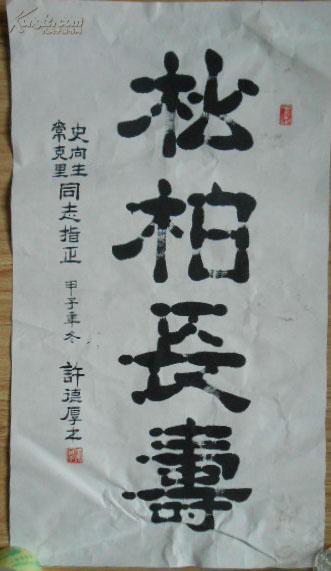 松柏長壽
史向生
常克里
同志指正
甲子年冬
許德厚之